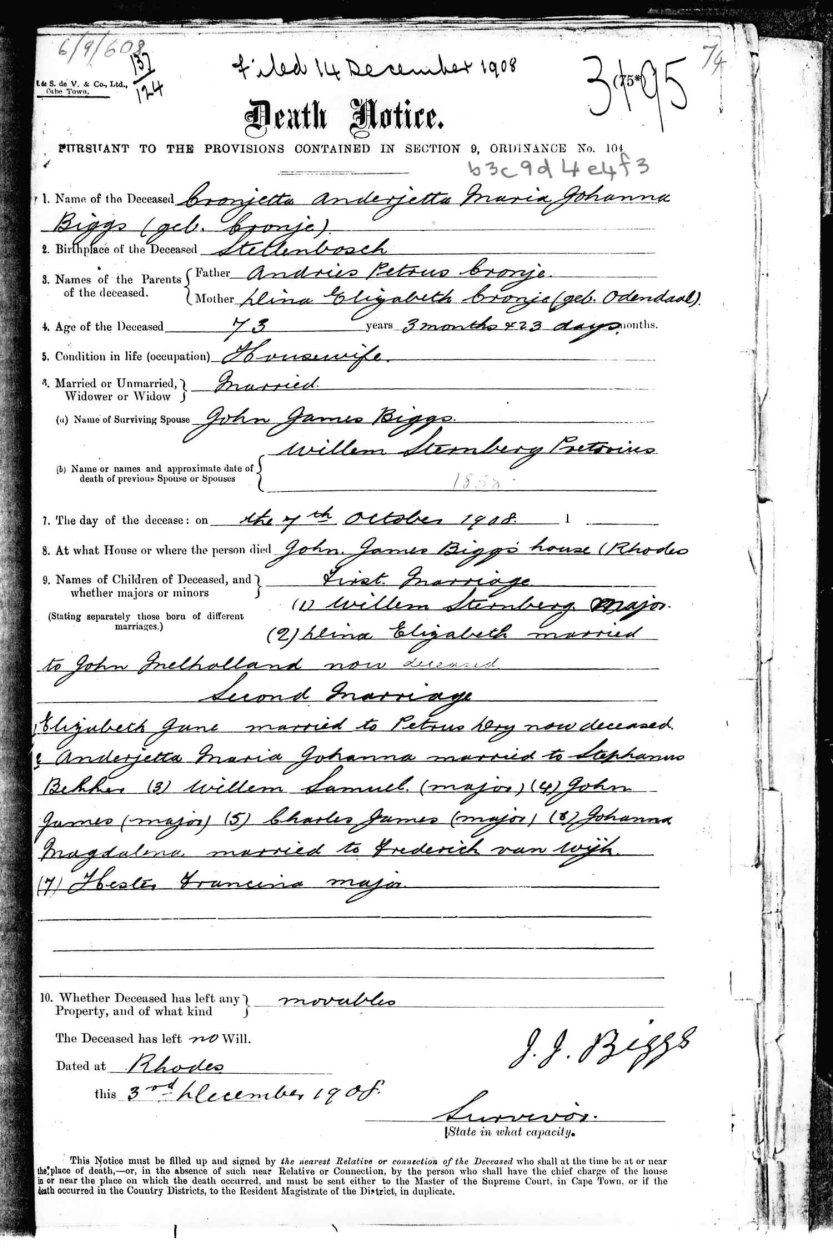 6/9/608
137
124
Filed 14 December 1908
3195
(75*
74
& S. de V. & Co., Ltd.,
Cape Town.
Death Notice.
PURSUANT TO THE PROVISIONS CONTAINED IN SECTION 9, ORDINANCE No. 104
b3c9d4e4f3
1. Name of the Deceased Cronjetta Anderjetta Maria Johanna
Biggs (geb. Cronje).
2. Birthplace of the Deceased Stellenbosch
3. Names of the Parents of the deceased. Father Andries Petrus Cronje.
Mother Dina Elizabeth Cronje (geb. Odendaal).
4. Age of the Deceased 73 years 3 months & 23 days months.
5. Condition in life (occupation) Housewife.
6. Married or Unmarried, Widower or Widow Married.
(a) Name of Surviving Spouse John James Biggs.
Willem Sternberg Pretorius
(b) Name or names and approximate date of death of previous Spouse or Spouses
7. The day of the decease: on the 7th October 1908. 1
8. At what House or where the person died John James Biggs' house (Rhodes
9. Names of Children of Deceased, and whether majors or minors First Marriage
(1) Willem Sternberg Major.
(Stating separately those born of different marriages.)
(2) Dina Elizabeth married
to John Melholland now deceased
Second Marriage
1 Elizabeth Jane married to Petrus Dry now deceased.
2 Anderjetta Maria Johanna married to Stephanus
Bekker (3) Willem Samuel (major) (4) John
James (major) (5) Charles James (major) (6) Johanna
Magdalena married to Frederick van Wijk.
(7) Hester Francina major.
10. Whether Deceased has left any Property, and of what kind movables
The Deceased has left no Will.
J. J. Biggs
Dated at Rhodes
this 3rd December 1908.
Survivor.
State in what capacity.
This Notice must be filled up and signed by the nearest Relative or connection of the Deceased who shall at the time be at or near
the place of death,—or, in the absence of such near Relative or Connection, by the person who shall have the chief charge of the house
in or near the place on which the death occurred, and must be sent either to the Master of the Supreme Court, in Cape Town, or if the
death occurred in the Country Districts, to the Resident Magistrate of the District, in duplicate.